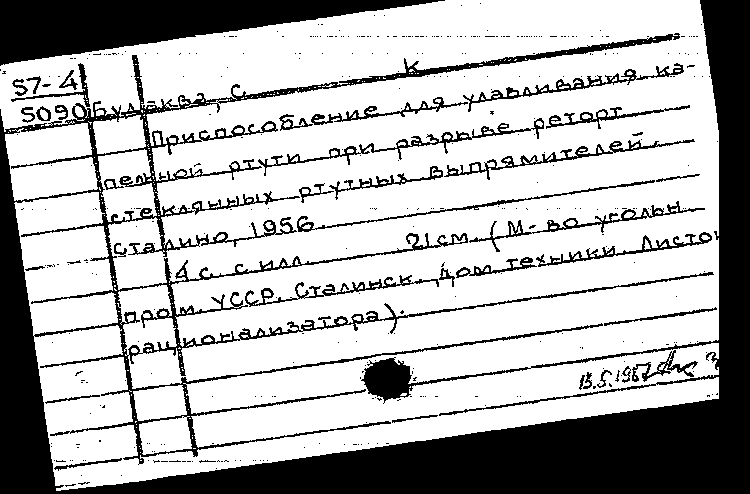 57-4
5090 Булаква, С. К
Приспособление для улавливания ка-
пельной ртути при разрыве реторт
стеклянных ртутных выпрямителей.
Сталино, 1956.
4 с. с илл. 21 см. (М-во угольн.
пром. УССР. Сталинск. Дом техники. Листок
рационализатора).
13.5.1957